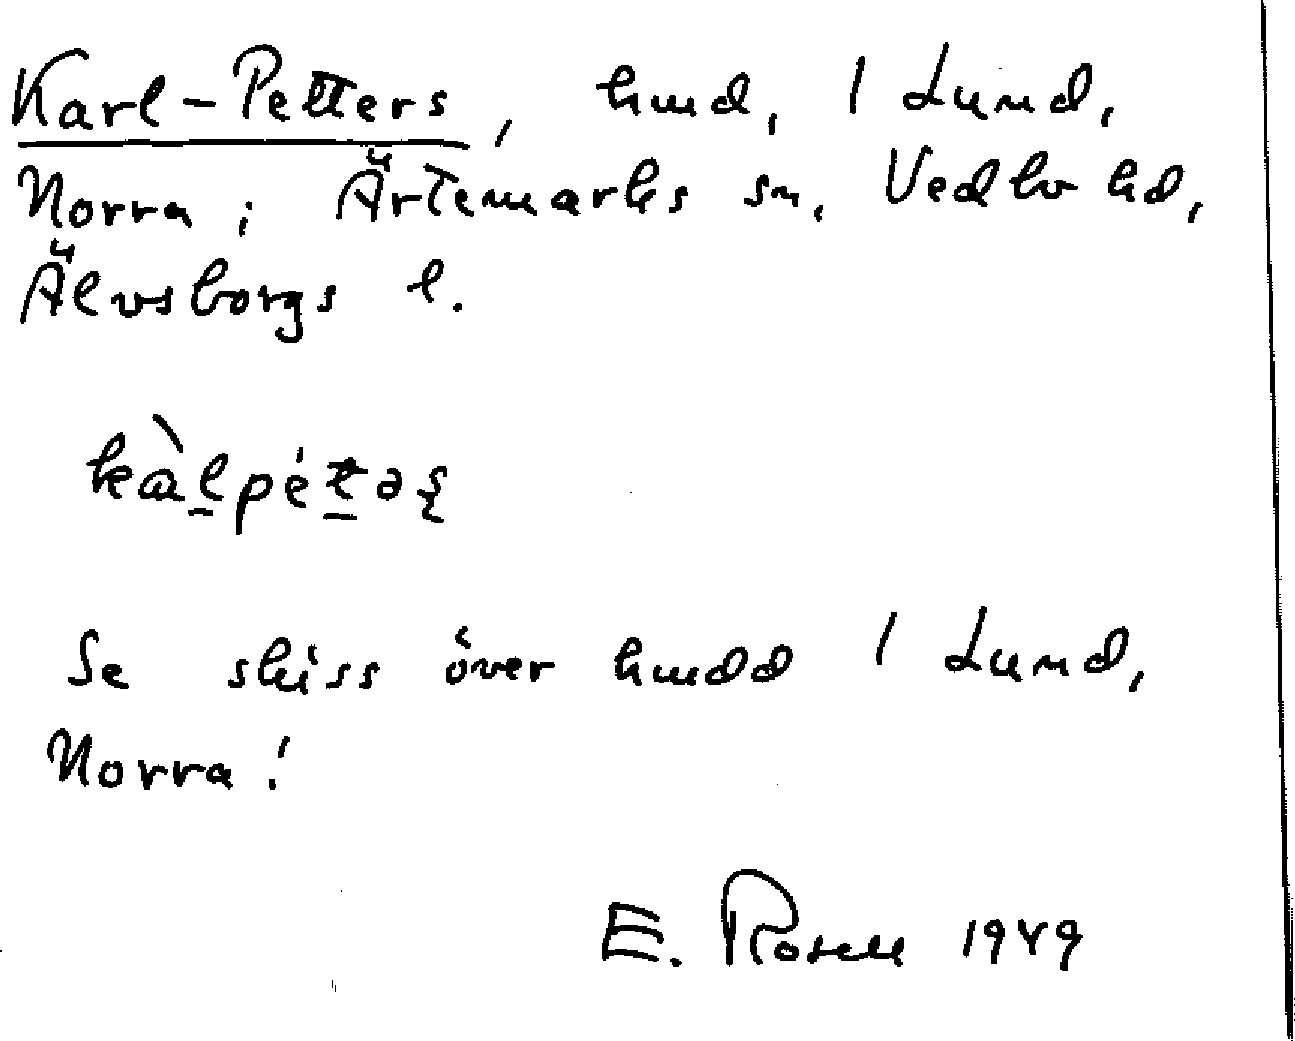 Karl-Petters, hmd, 1 Lund,
Norra; Ärtemarks sn, Vedbo hd,
Älvsborgs l.
kàlpétəş
Se skiss över hmdd 1 Lund,
Norra!
E. Rosell 1949